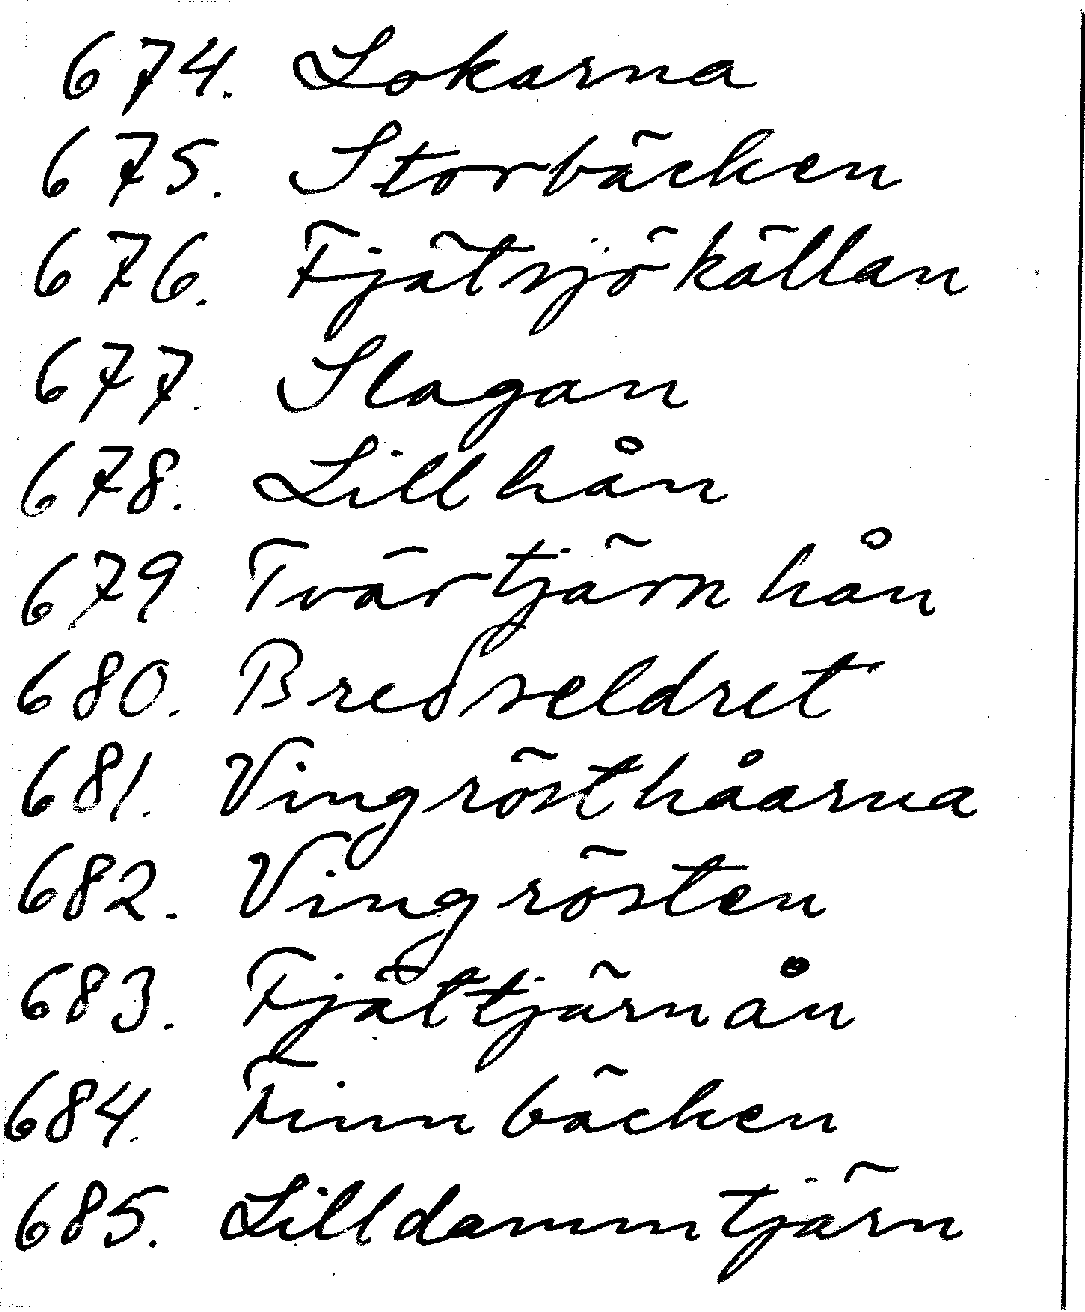 674. Lokarna
675. Storbäcken
676. Fjätsjökällan
677. Slagan
678. Lillhån
679 Tvärtjärnhån
680. Bredseldret
681. Vingrösthåarna
682. Vingrösten
683. Fjättjärnån
684. Finnbäcken
685. Lilldammtjärn